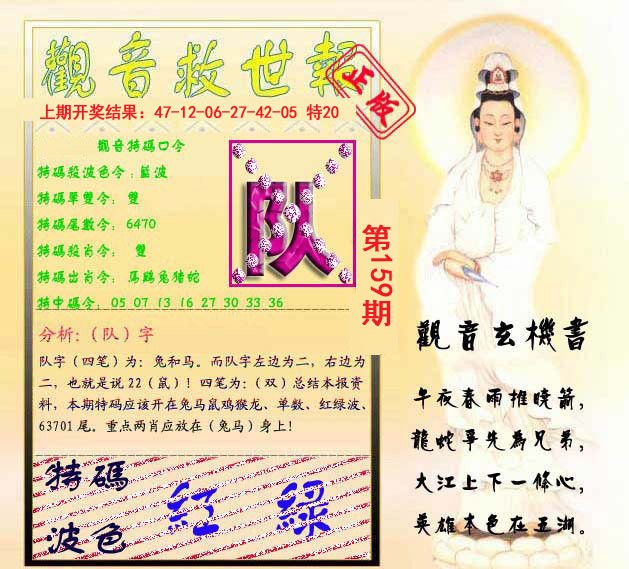 觀音救世報
正版
上期开奖结果：47-12-06-27-42-05 特20
觀音特碼口令
特碼殺波色令：藍波
特碼單雙令： 雙
特碼尾數令： 6470
特碼殺肖令： 雙
特碼出肖令： 馬鷄兔猪蛇
特中碼令： 05 07 13 16 27 30 33 36
队
第159期
分析：（队）字
队字（四笔）为：兔和马。而队字左边为二，右边为
二，也就是说22（鼠）！四笔为：（双）总结本报资
料，本期特码应该开在兔马鼠鸡猴龙、单数、红绿波、
63701尾。重点两肖应放在（兔马）身上！
特碼
波色
红 綠
觀音玄機書
午夜春雨推曉箭，
龍蛇爭先為兄弟，
大江上下一條心，
英雄本色在五湖。